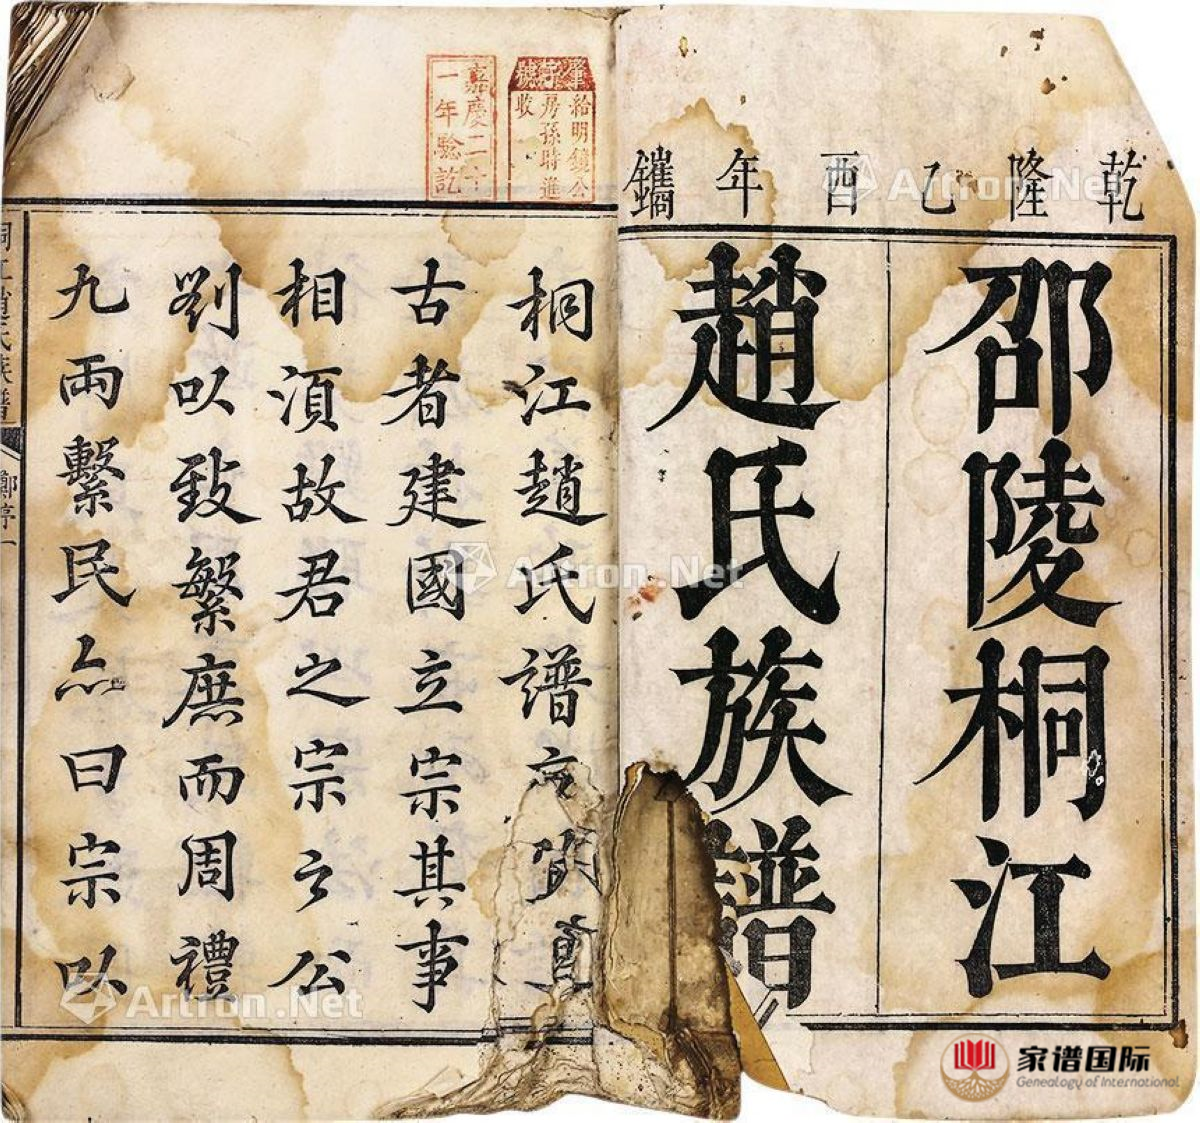 乾隆乙酉年鐫
邵陵桐江
趙氏族譜
肇字號
給明鏡公
房孫時進
收
嘉慶二十
一年驗訖
桐江趙氏譜序
古者建國立宗其事
相湏故君之宗之公
劉以致繁庶而周禮
九兩繫民亦曰宗以
桐江趙氏族譜
鄭序一
Artron.Net
Artron.Net
Artron.Net
家谱国际
Genealogy of International